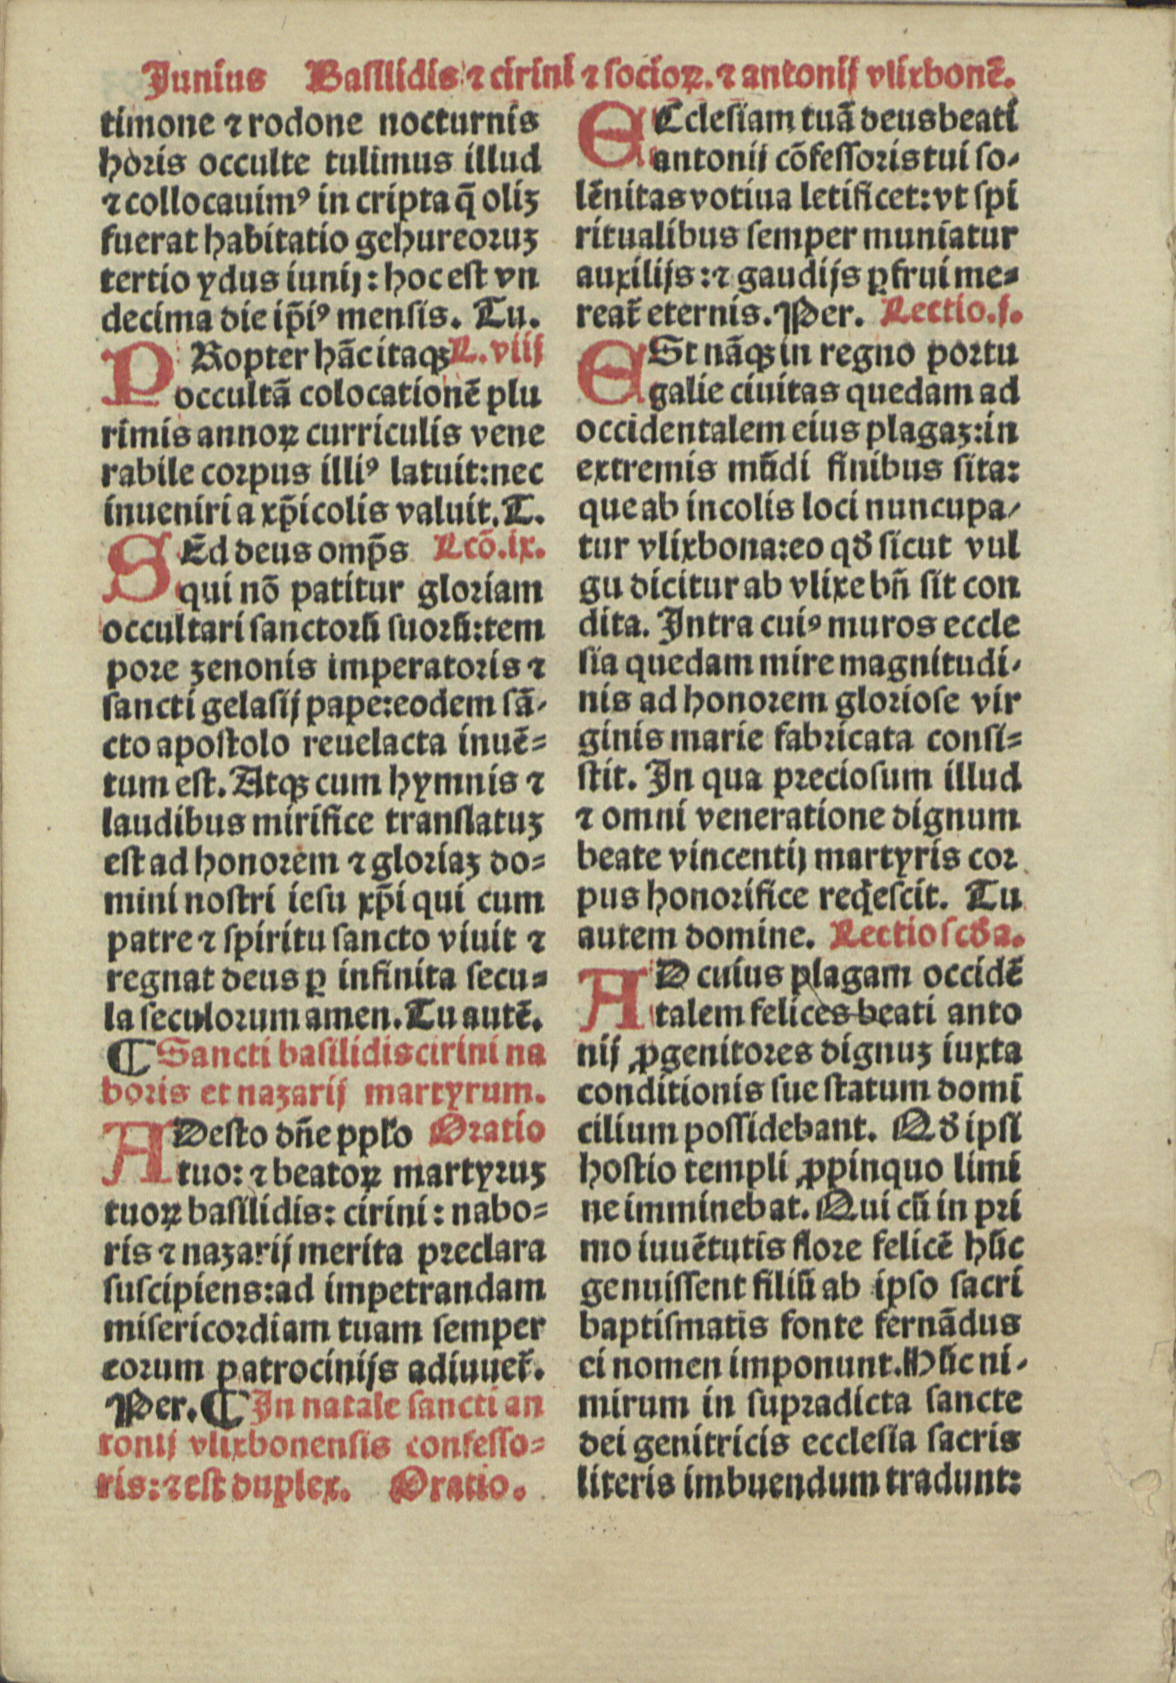 Junius Basilidis ⁊ cirini ⁊ socioꝝ. ⁊ antonij vlixbonẽ.
timone ⁊ rodone nocturnis
horis occulte tulimus illud
⁊ collocauimꝰ in cripta q̃ oliʒ
fuerat habitatio gehureoruʒ
tertio ydus iunij: hoc est vn
decima die ip̃iꝰ mensis. Tu.
PRopter hãc itaqʒ L. viij
occultã colocationẽ plu
rimis annoꝝ curriculis vene
rabile corpus illiꝰ latuit: nec
inueniri a xp̃icolis valuit. T.
SEd deus omp̃s Lcõ. ix.
qui nõ patitur gloriam
occultari sanctorũ suorũ: tem
pore zenonis imperatoris ⁊
sancti gelasij pape: eodem sã-
cto apostolo reuelacta inuẽ-
tum est. Atqʒ cum hymnis ⁊
laudibus mirifice translatuʒ
est ad honorem ⁊ gloriaʒ do-
mini nostri iesu xp̃i qui cum
patre ⁊ spiritu sancto viuit ⁊
regnat deus ꝑ infinita secu-
la seculorum amen. Tu autẽ.
¶ Sancti basilidis cirini na
boris et nazarij martyrum.
ADesto dñe pplo Oratio
tuo: ⁊ beatoꝝ martyruʒ
tuoꝝ basilidis: cirini: nabo-
ris ⁊ nazarij merita preclara
suscipiens: ad impetrandam
misericordiam tuam semper
eorum patrocinijs adiuuet̃.
Per. ¶ In natale sancti an
tonij vlixbonensis confesso-
ris: ⁊ est duplex. Oratio.
ECclesiam tuã deus beati
antonii cõfessoris tui so-
lẽnitas votiua letificet: vt spi
ritualibus semper muniatur
auxilijs: ⁊ gaudijs ꝑfrui me-
reat̃ eternis. Per. Lectio. j.
ESt nãqʒ in regno portu
galie ciuitas quedam ad
occidentalem eius plagaʒ: in
extremis mũdi finibus sita:
que ab incolis loci nuncupa-
tur vlixbona: eo qđ sicut vul
gu dicitur ab vlixe bñ sit con
dita. Intra cuiꝰ muros eccle
sia quedam mire magnitudi-
nis ad honorem gloriose vir
ginis marie fabricata consi-
stit. In qua preciosum illud
⁊ omni veneratione dignum
beate vincentij martyris cor
pus honorifice reqͥescit. Tu
autem domine. Lectio scđa.
AD cuius plagam occidẽ
talem felices beati anto
nij ꝓgenitores dignuʒ iuxta
conditionis sue statum domi
cilium possidebant. Qđ ipsi
hostio templi ꝓpinquo limi
ne imminebat. Qui cũ in pri
mo iuuẽtutis flore felicẽ hũc
genuissent filiũ ab ipso sacri
baptismatis fonte fernãdus
ei nomen imponunt. Hũc ni-
mirum in supradicta sancte
dei genitricis ecclesia sacris
literis imbuendum tradunt: